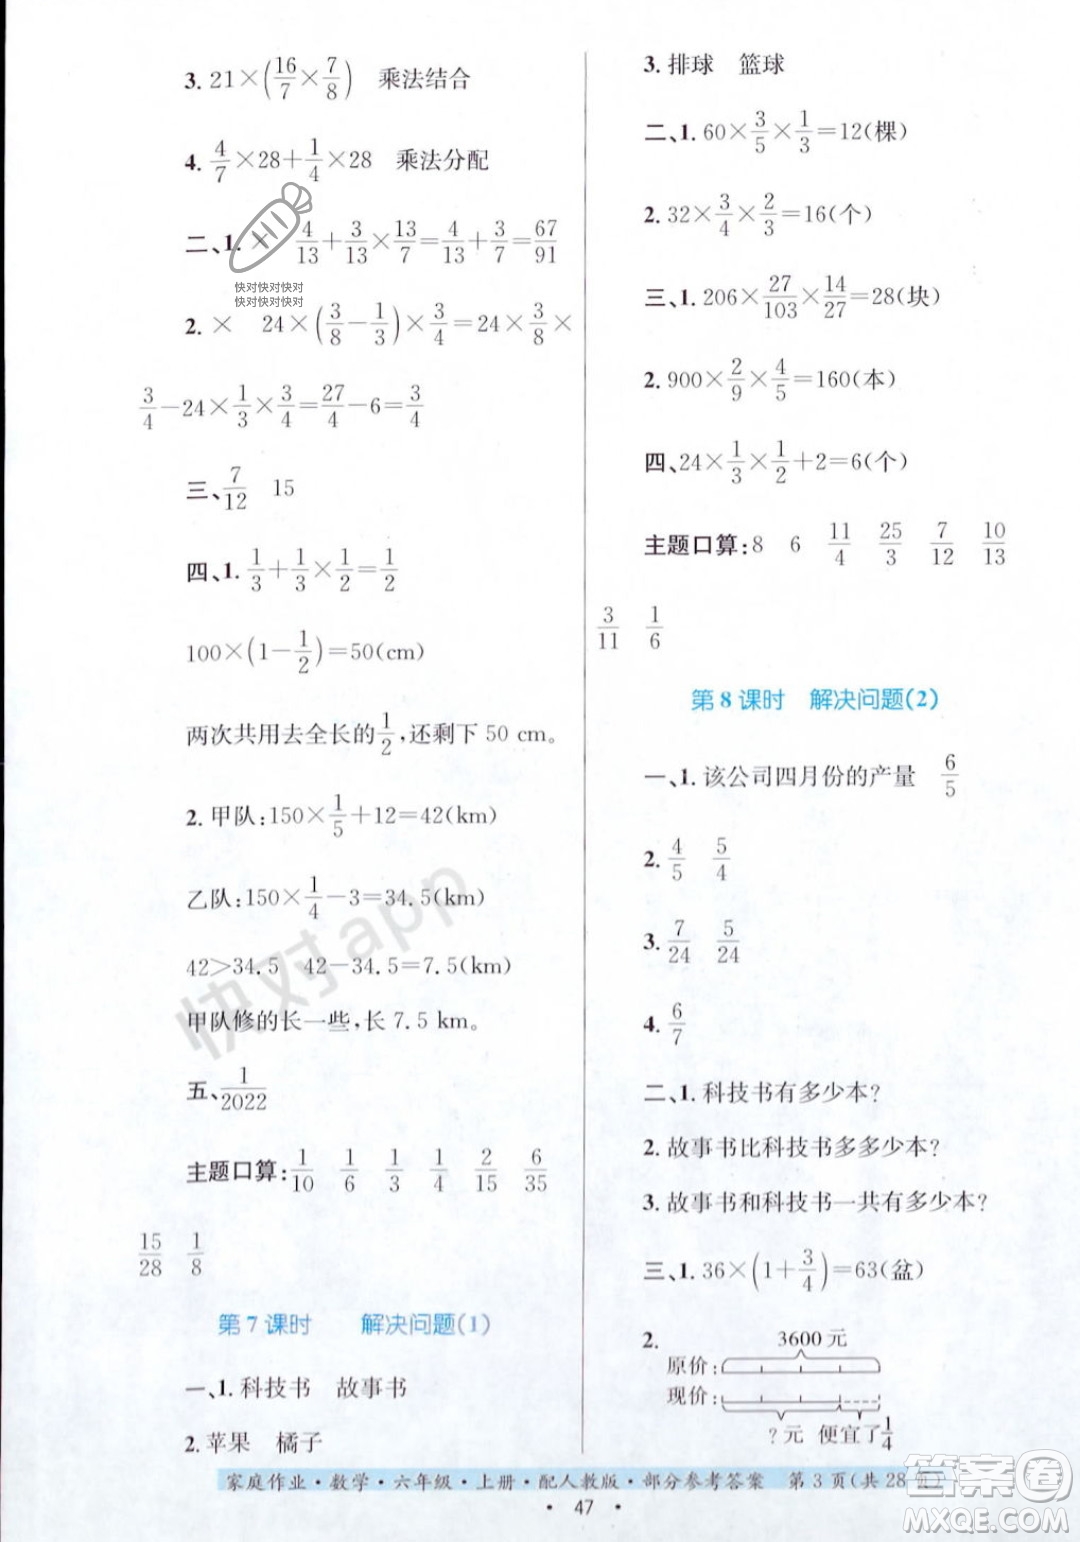 3. 21×(16/7×7/8) 乘法结合
4. 4/7×28+1/4×28 乘法分配
二、1. × 4/13+3/13×13/7=4/13+3/7=67/91
快对快对快对
快对快对快对
2. × 24×(3/8-1/3)×3/4=24×3/8×
3/4-24×1/3×3/4=27/4-6=3/4
三、7/12 15
四、1. 1/3+1/3×1/2=1/2
100×(1-1/2)=50(cm)
两次共用去全长的1/2,还剩下 50 cm。
2. 甲队:150×1/5+12=42(km)
乙队:150×1/4-3=34.5(km)
42>34.5 42-34.5=7.5(km)
甲队修的长一些,长 7.5 km。
五、1/2022
主题口算:1/10 1/6 1/3 1/4 2/15 6/35
15/28 1/8
第 7 课时 解决问题(1)
一、1. 科技书 故事书
2. 苹果 橘子
3. 排球 篮球
二、1. 60×3/5×1/3=12(棵)
2. 32×3/4×2/3=16(个)
三、1. 206×27/103×14/27=28(块)
2. 900×2/9×4/5=160(本)
四、24×1/3×1/2+2=6(个)
主题口算:8 6 11/4 25/3 7/12 10/13
3/11 1/6
第 8 课时 解决问题(2)
一、1. 该公司四月份的产量 6/5
2. 4/5 5/4
3. 7/24 5/24
4. 6/7
二、1. 科技书有多少本?
2. 故事书比科技书多多少本?
3. 故事书和科技书一共有多少本?
三、1. 36×(1+3/4)=63(盆)
2. 3600 元
原价:
现价:
? 元 便宜了1/4
快对app
家庭作业·数学·六年级·上册·配人教版·部分参考答案 第 3 页(共 28 页)
· 47 ·
答案圈
MXQE.COM